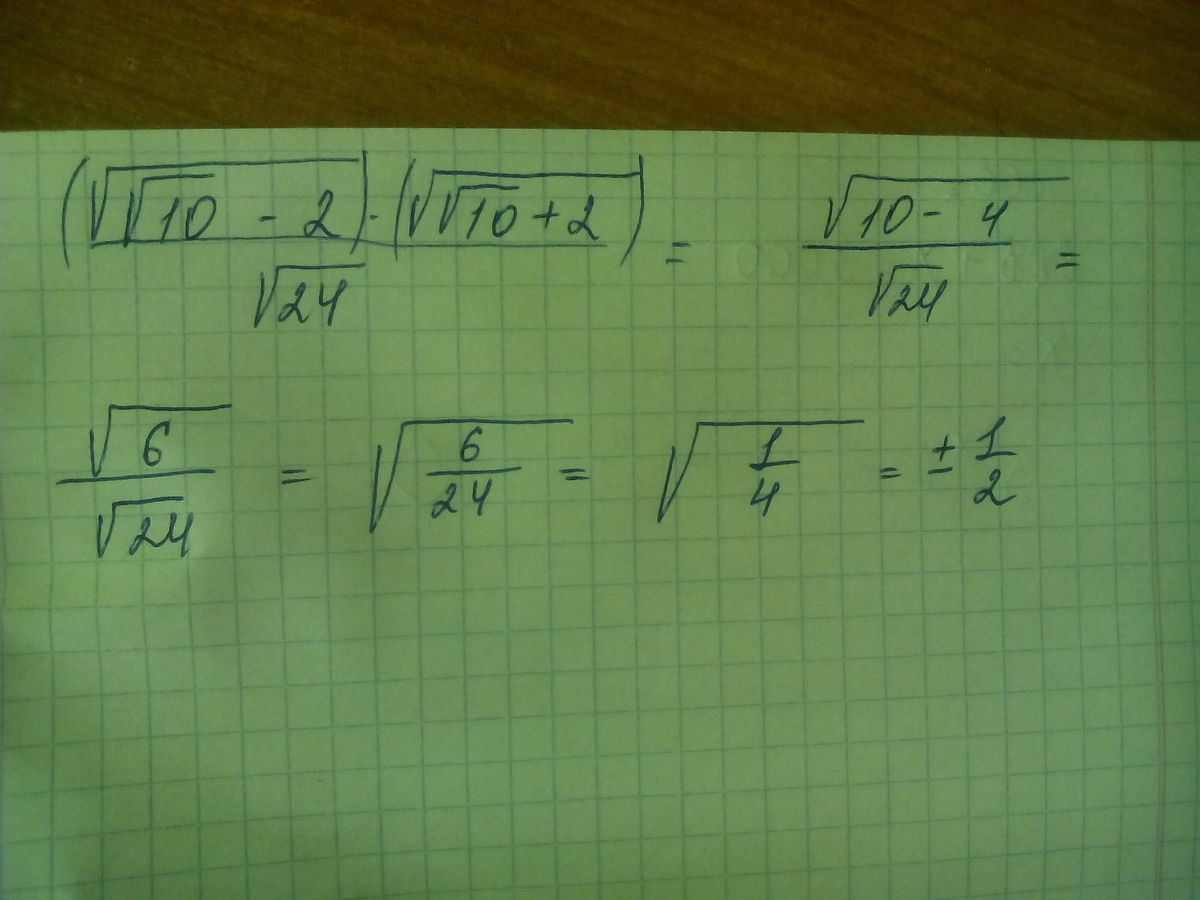 (√(√10 - 2)) · (√(√10 + 2)) / √24 = √(10 - 4) / √24 =
√6 / √24 = √(6/24) = √(1/4) = ± 1/2